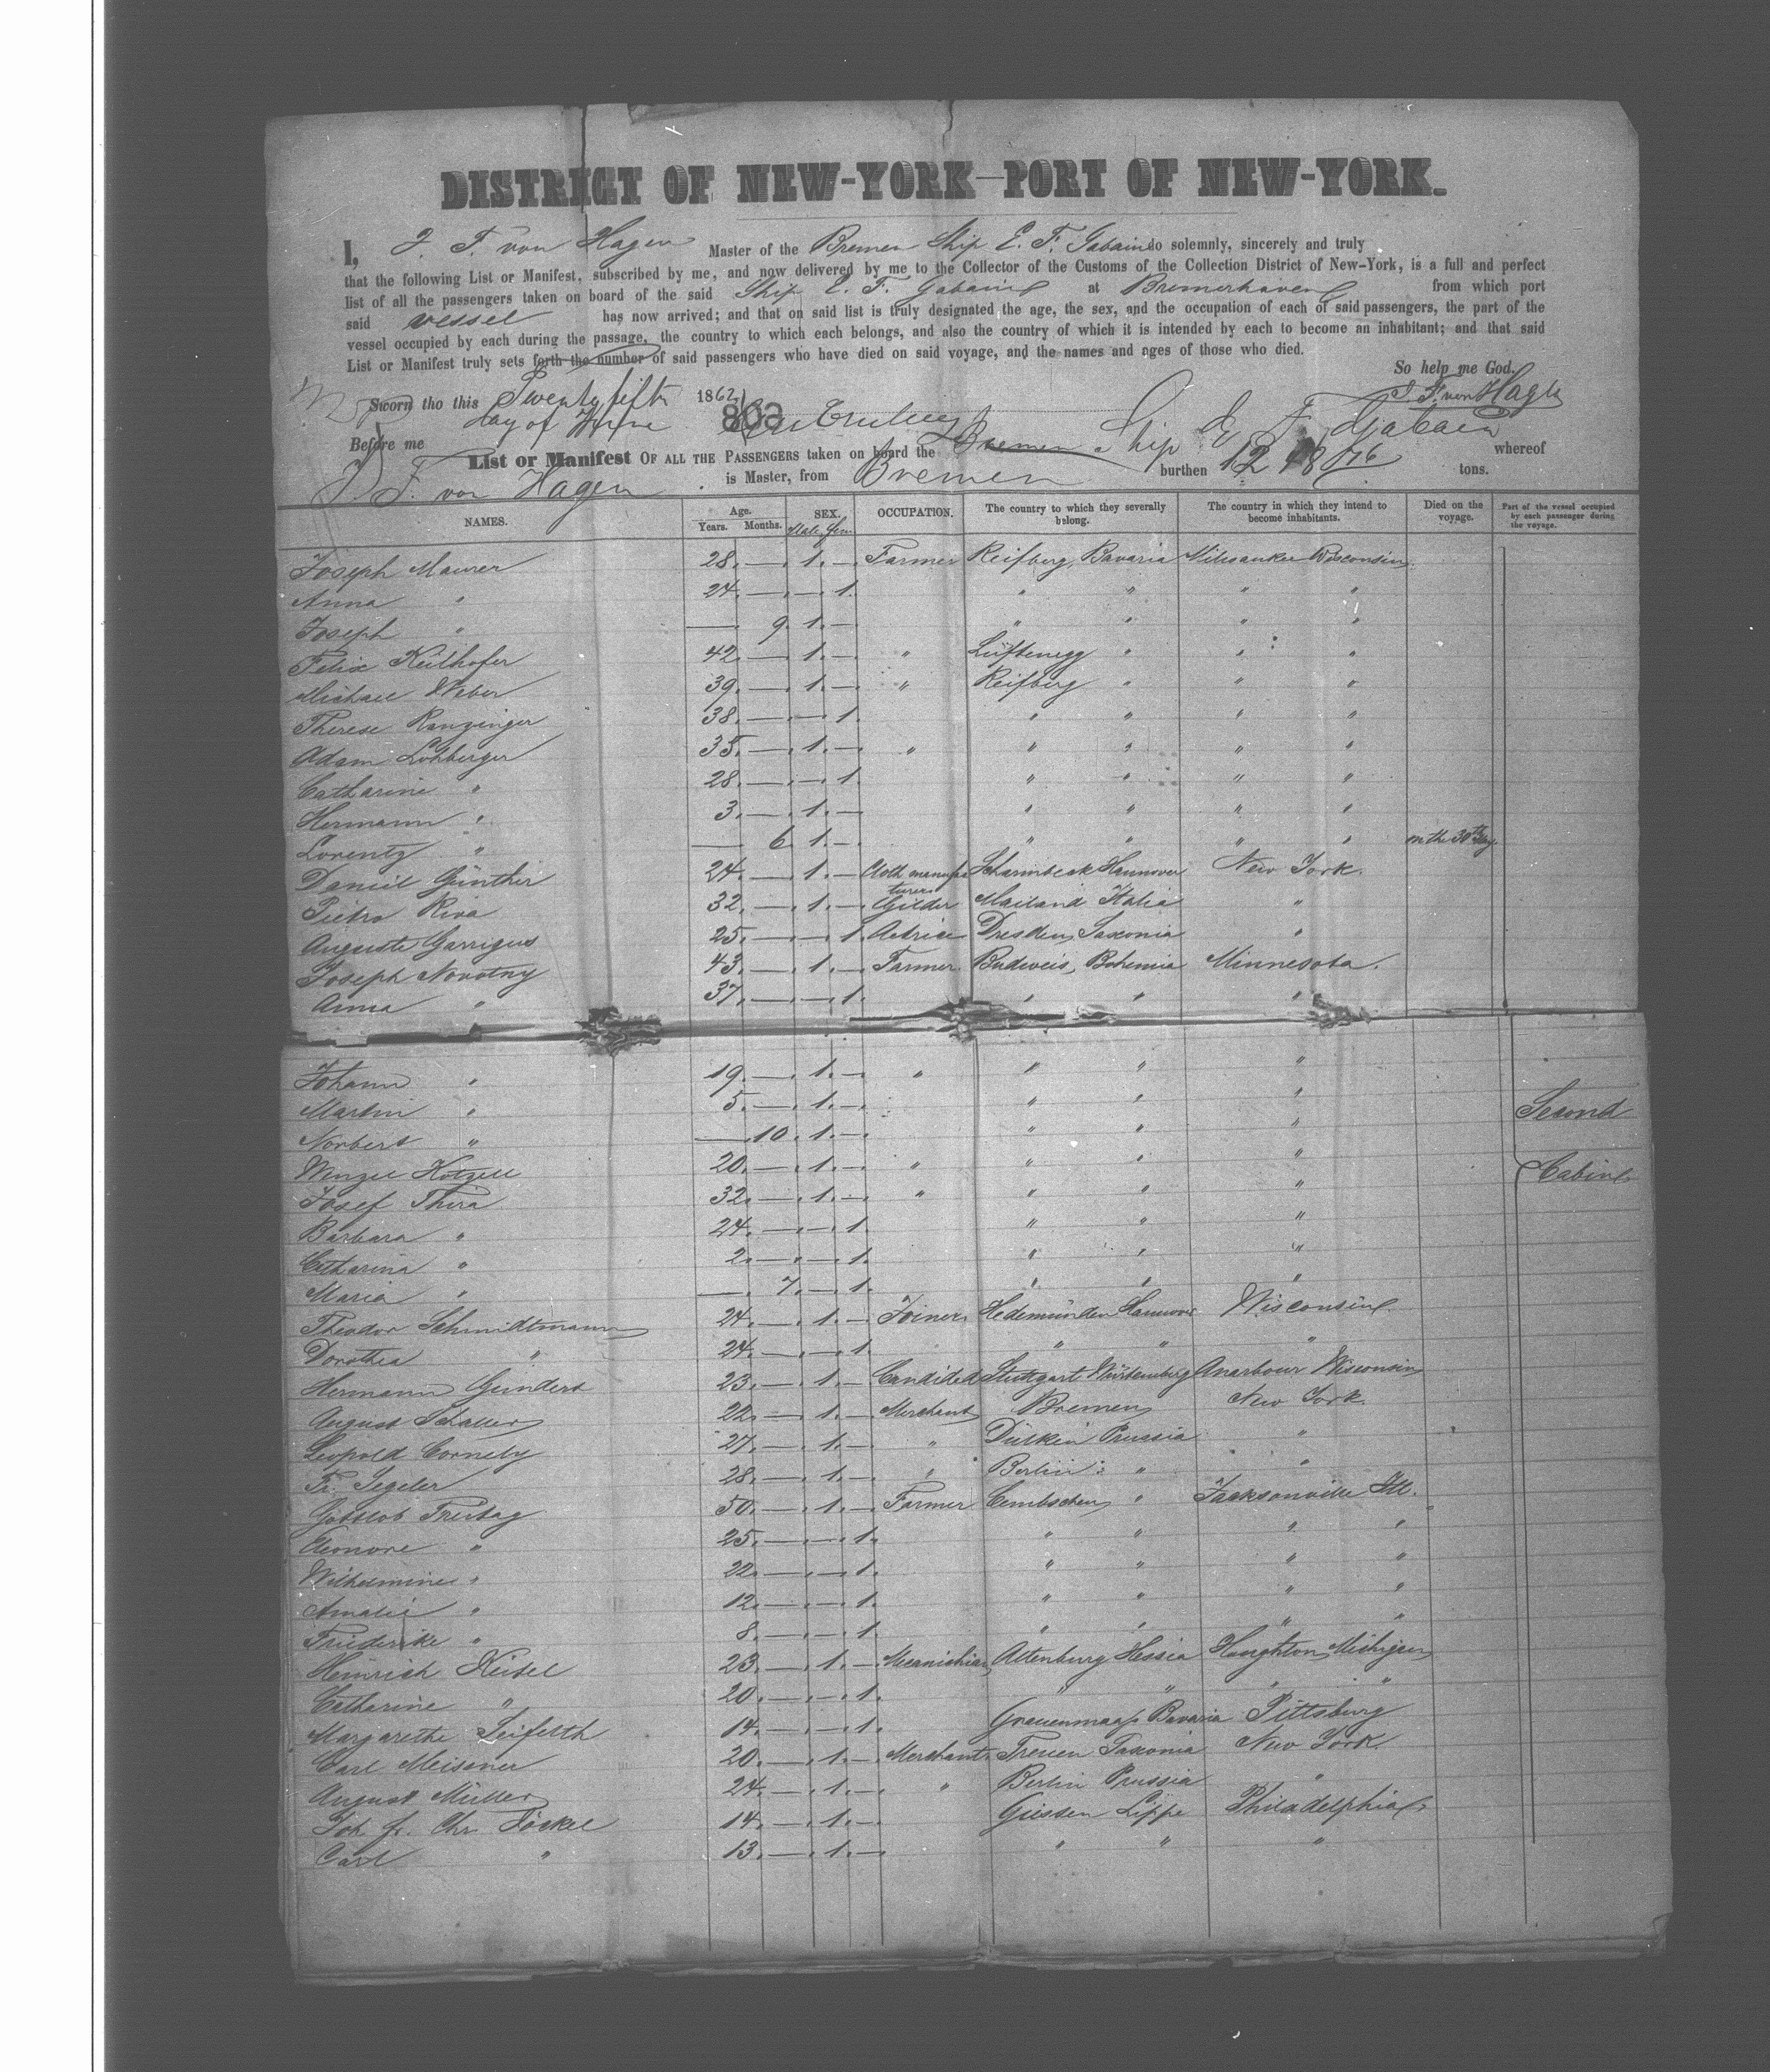 DISTRICT OF NEW-YORK—PORT OF NEW-YORK.
I, J. F. von Hagen Master of the Bremen Ship E. F. Gabain do solemnly, sincerely and truly
that the following List or Manifest, subscribed by me, and now delivered by me to the Collector of the Customs of the Collection District of New-York, is a full and perfect
list of all the passengers taken on board of the said Ship E. F. Gabain at Bremerhaven from which port
said vessel has now arrived; and that on said list is truly designated the age, the sex, and the occupation of each of said passengers, the part of the
vessel occupied by each during the passage, the country to which each belongs, and also the country of which it is intended by each to become an inhabitant; and that said
List or Manifest truly sets forth the number of said passengers who have died on said voyage, and the names and ages of those who died.
So help me God.
Sworn tho this Twenty fifth 1862 J. F. von Hagen
day of June 803
Before me
List or Manifest OF ALL THE PASSENGERS taken on board the Bremen Ship E. F. Gabain whereof
J. F. von Hagen is Master, from Bremen burthen tons.
NAMES. Age. Years. Months. SEX. Male. Fem. OCCUPATION. The country to which they severally belong. The country in which they intend to become inhabitants. Died on the voyage. Part of the vessel occupied by each passenger during the voyage.
Joseph Maurer 28. — 1. — Farmer Reifberg, Bavaria Milwaukee Wisconsin.
Anna " 24. — — 1. " " " "
Joseph " — 9. 1. — " " " "
Felix Keilhofer 42. — 1. — " Lüftenegg " " "
Michael Weber 39. — 1. — " Reifberg " " "
Therese Ranzinger 38. — — 1. " " " "
Adam Lohberger 35. — 1. — " " " " "
Catharine " 28. — — 1. " " " "
Hermann " 3. — 1. — " " " "
Lorentz " — 6. 1. — " " " " on the 30th May.
Daniel Günther 24. — 1. — Cloth manufacturer Scharmbeck Hannover New York.
Pietro Riva 32. — 1. — Gilder Mailand Italia "
Auguste Garrigus 25. — — 1. Actrice Dresden, Saxonia "
Joseph Novotny 43. — 1. — Farmer. Budweis, Bohemia Minnesota.
Anna " 37. — — 1. " " "
Johann " 19. — 1. — " " " "
Martin " 5. — 1. — " " " Second
Norbert " — 10. 1. — " " "
Wenzel Kotzell 20. — 1. — " " " " Cabin
Josef Thira 32. — 1. — " " " "
Barbara " 24. — — 1. " " "
Catharina " 2. — — 1. " " "
Maria " — 7. — 1. " " "
Theodor Schmidtmann 24. — 1. — Joiner. Hedemünden Hannover Wisconsin.
Dorothea " 24. — — 1. " " "
Hermann Gundert 23. — 1. — Candided Stuttgart Würtemberg Anarbour Wisconsin
August Schaller 22. — 1. — Merchant Bremen New York.
Leopold Corneby 27. — 1. — " Dülken Prussia "
Fr. Segeler 28. — 1. — " Berlin " "
Gottlob Freitag 50. — 1. — Farmer " Jacksonville Ill.
Eleonore " 25. — — 1. " " " "
Wilhelmine " 22. — — 1. " " " "
Amalie " 12. — — 1. " " " "
Friederike " 8. — — 1. " " " "
Heinrich Keisel 23. — 1. — Mecanichian Altenburg Hessia Houghton, Michigan
Catharine " 20. — — 1. " " " "
Margarethe Seiferth 14. — — 1. Bavaria Pittsburg
Carl Meissner 20. — 1. — Merchant. Treuen Saxonia New York.
August Müller 24. — 1. — " Berlin Prussia "
Joh. fr. Chr. Döckel 14. — 1. — Giessen Lippe Philadelphia.
Carl " 13. — 1. — " " "